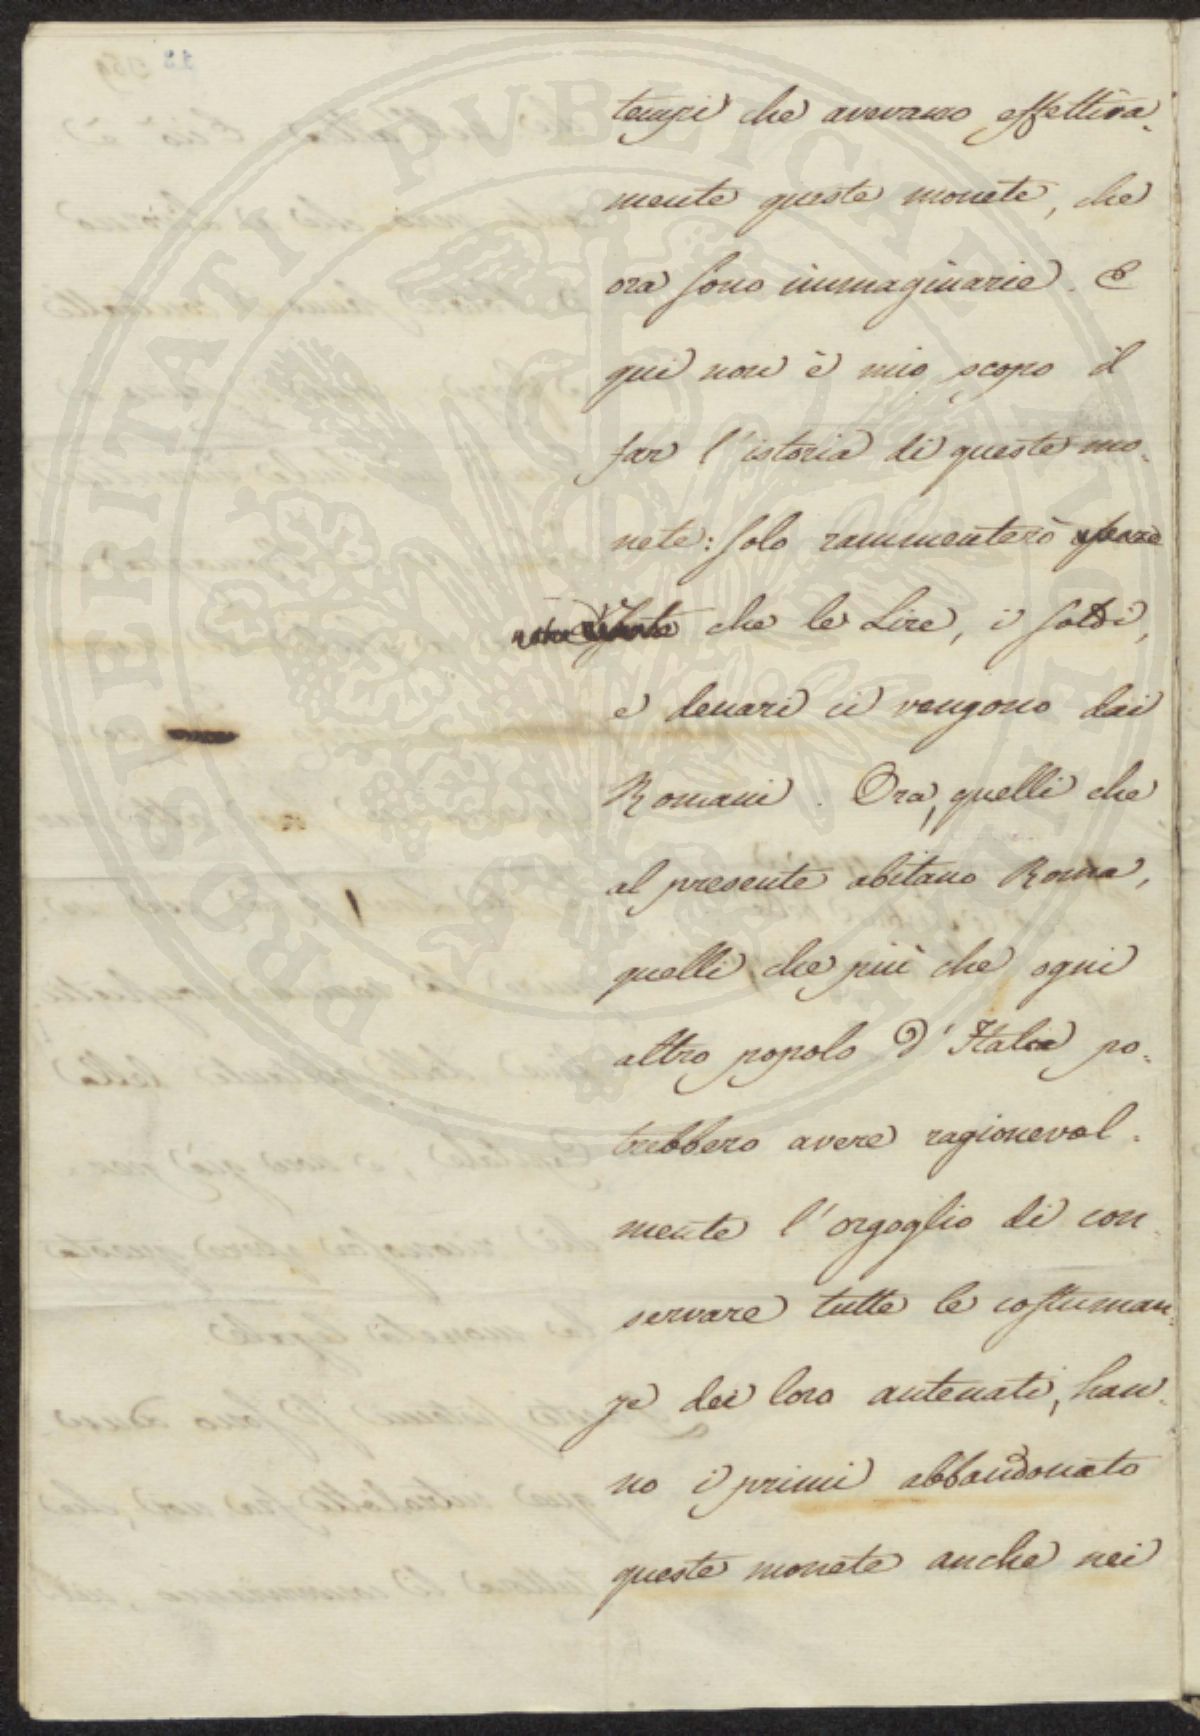 tempi che avevano effettiva=
mente queste monete, che
ora sono immaginarie. E
qui non è mio scopo il
far l'istoria di queste mo=
nete: solo rammenterò
che le Lire, i soldi,
e denari ci vengono dai
Romani. Ora, quelli che
al presente abitano Roma,
quelli che più che ogni
altro popolo d'Italia po=
trebbero avere ragioneval=
mente l'orgoglio di con=
servare tutte le costuman=
ze dei loro antenati, han=
no i primi abbandonato
queste monete anche nei
PROSPERITATI PVBLICAE AVGENDAE